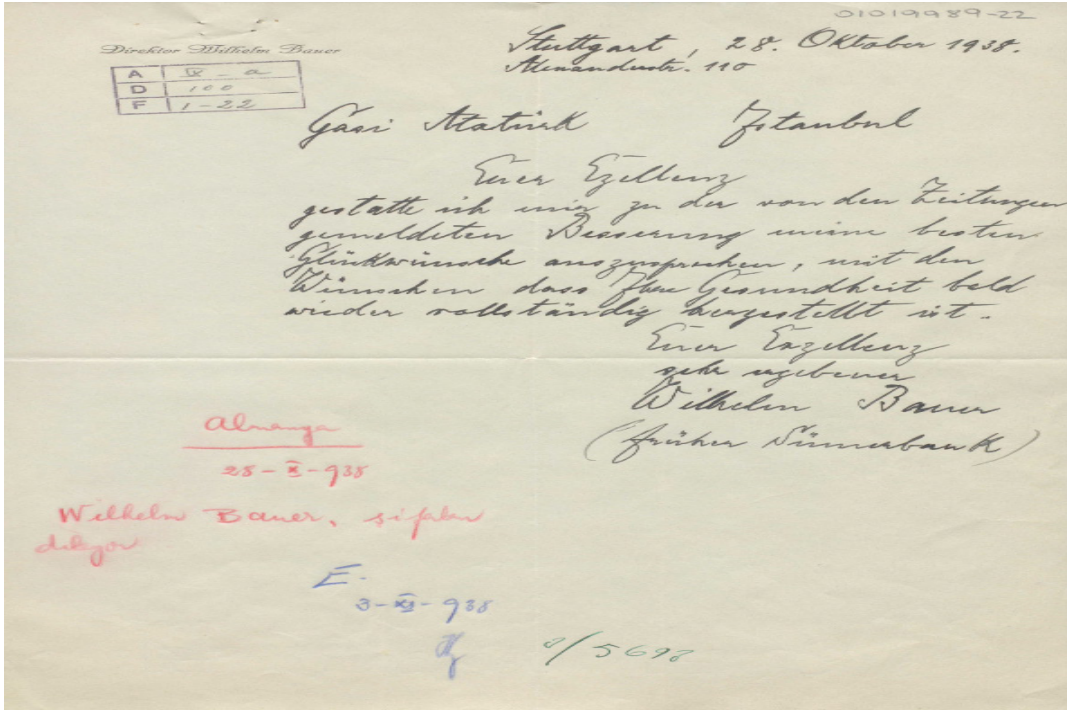 01019989-22
Direktor Wilhelm Bauer
Stuttgart, 28. Oktober 1938.
Alexanderstr. 110
A IX-a
D 100
F 1-22
Gasi Atatürk Istanbul
Euer Exzellenz
gestatte ich mir zu der von den Zeitungen
gemeldeten Besserung meine besten
Glückwünsche auszusprechen, mit den
Wünschen dass Ihre Gesundheit bald
wieder vollständig hergestellt ist.
Euer Exzellenz
sehr ergebener
Wilhelm Bauer
(früher Sümerbank)
Almanya
28-X-938
Wilhelm Bauer, şifalar
diliyor
E.
3-XI-938
/5698